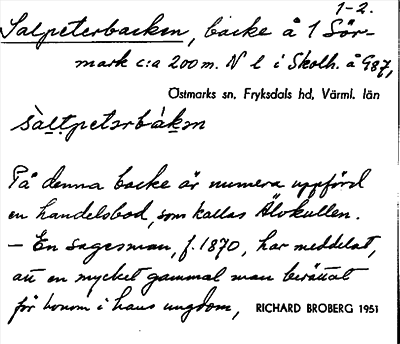 1-2.
Salpeterbacken, backe å 1 Sör-
mark c:a 200 m. N l i Skolh. å 987,
Östmarks sn, Fryksdals hd, Värml. län
På denna backe är numera uppförd
en handelsbod, som kallas Älvkullen.
– En sagesman, f. 1870, har meddelat,
att en mycket gammal man berättat
för honom i hans ungdom, RICHARD BROBERG 1951